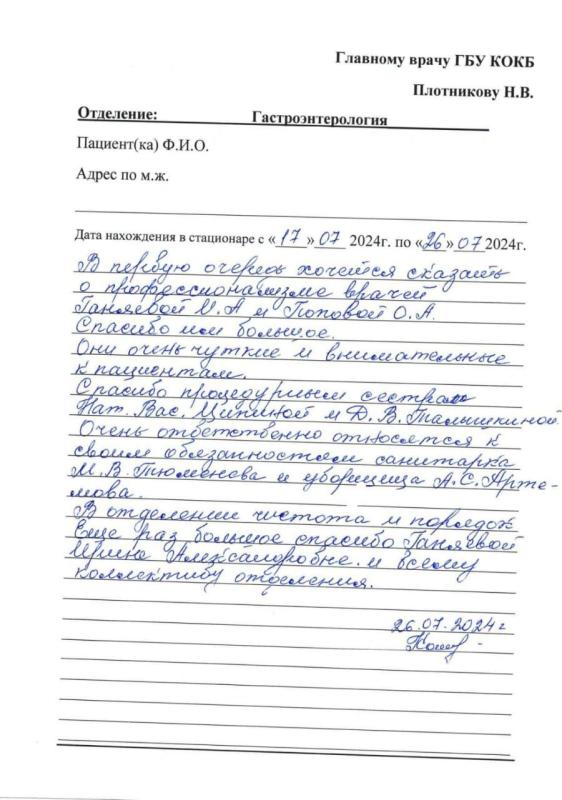 Главному врачу ГБУ КОКБ
Плотникову Н.В.
Отделение: Гастроэнтерология
Пациент(ка) Ф.И.О.
Адрес по м.ж.
Дата нахождения в стационаре с «17» 07 2024г. по «26» 07 2024г.
В первую очередь хочется сказать
о профессионализме врачей
Ганяевой И.А и Поповой О.А.
Спасибо им большое.
Они очень чуткие и внимательные
к пациентам.
Спасибо процедурным сестрам
Нат. Вас. Ципиной и Д.В. Талышкиной
Очень ответственно относятся к
своим обязанностям санитарка
М.В. Тюменева и уборщица А.С. Арте-
мова.
В отделении чистота и порядок
Еще раз большое спасибо Ганяевой
Ирине Александровне и всему
коллективу отделения.
26.07.2024г